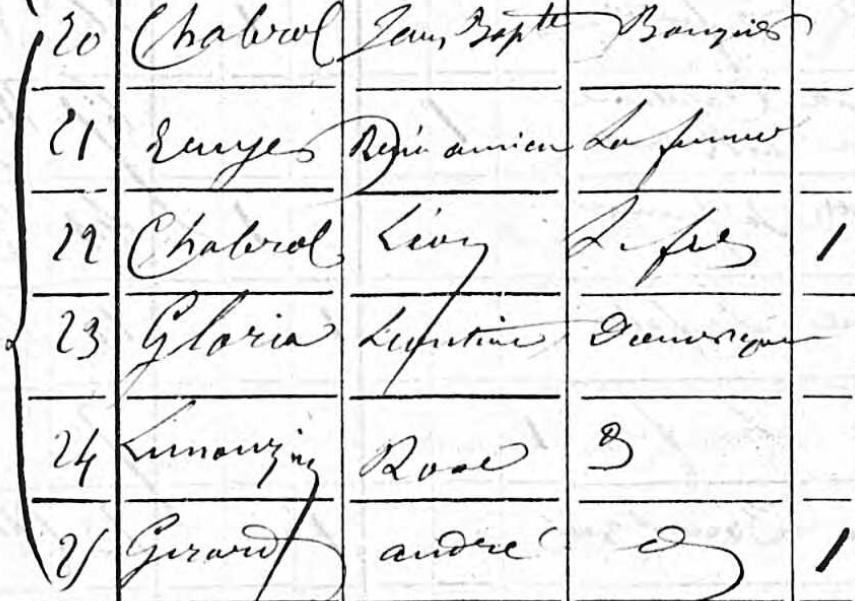 20 Chabrol Jean Bapte Banquier
21 Benjamien La femme
22 Chabrol Léon Le fils 1
23 Gloria Léontine Domestique
24 Limouzin Rose d
25 Girard andré d 1